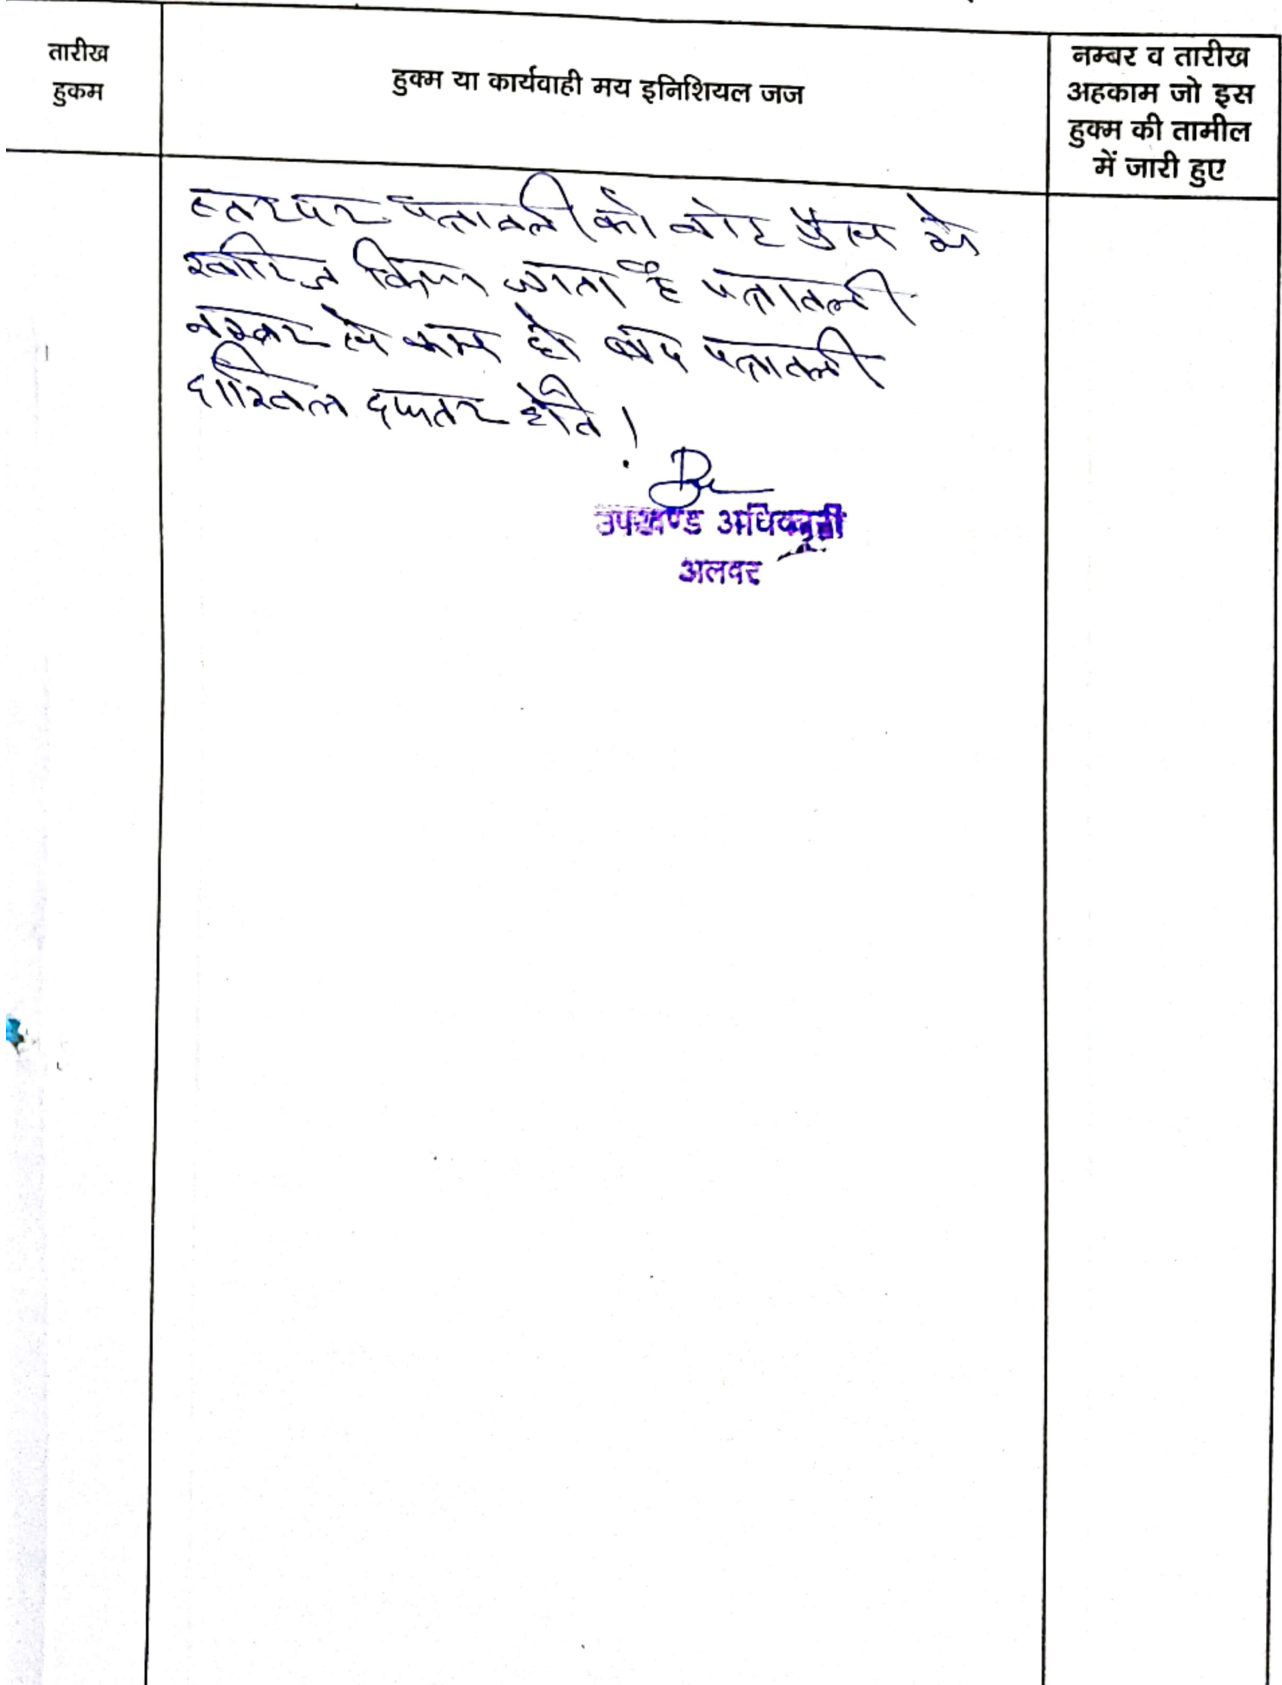 तारीख
हुकम
हुक्म या कार्यवाही मय इनिशियल जज
नम्बर व तारीख
अहकाम जो इस
हुक्म की तामील
में जारी हुए
स्तर पर पत्रावली को नोट प्रेस में
खारिज किया जाता है पत्रावली
नम्बर से कम हो बाद पत्रावली
दाखिल दफ्तर होवे।
उपखण्ड अधिकारी
अलवर